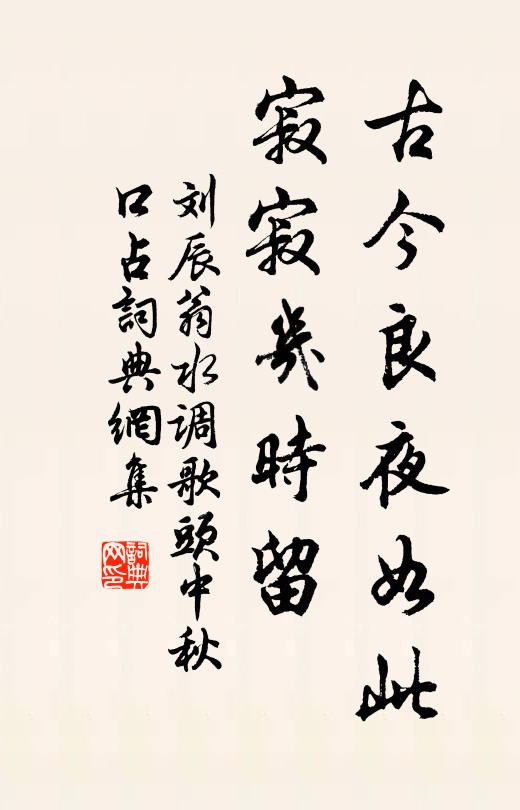 古今良夜如此
寂寂幾時留
刘辰翁水调歌頭中秋
口占詞典網集
詞典网印